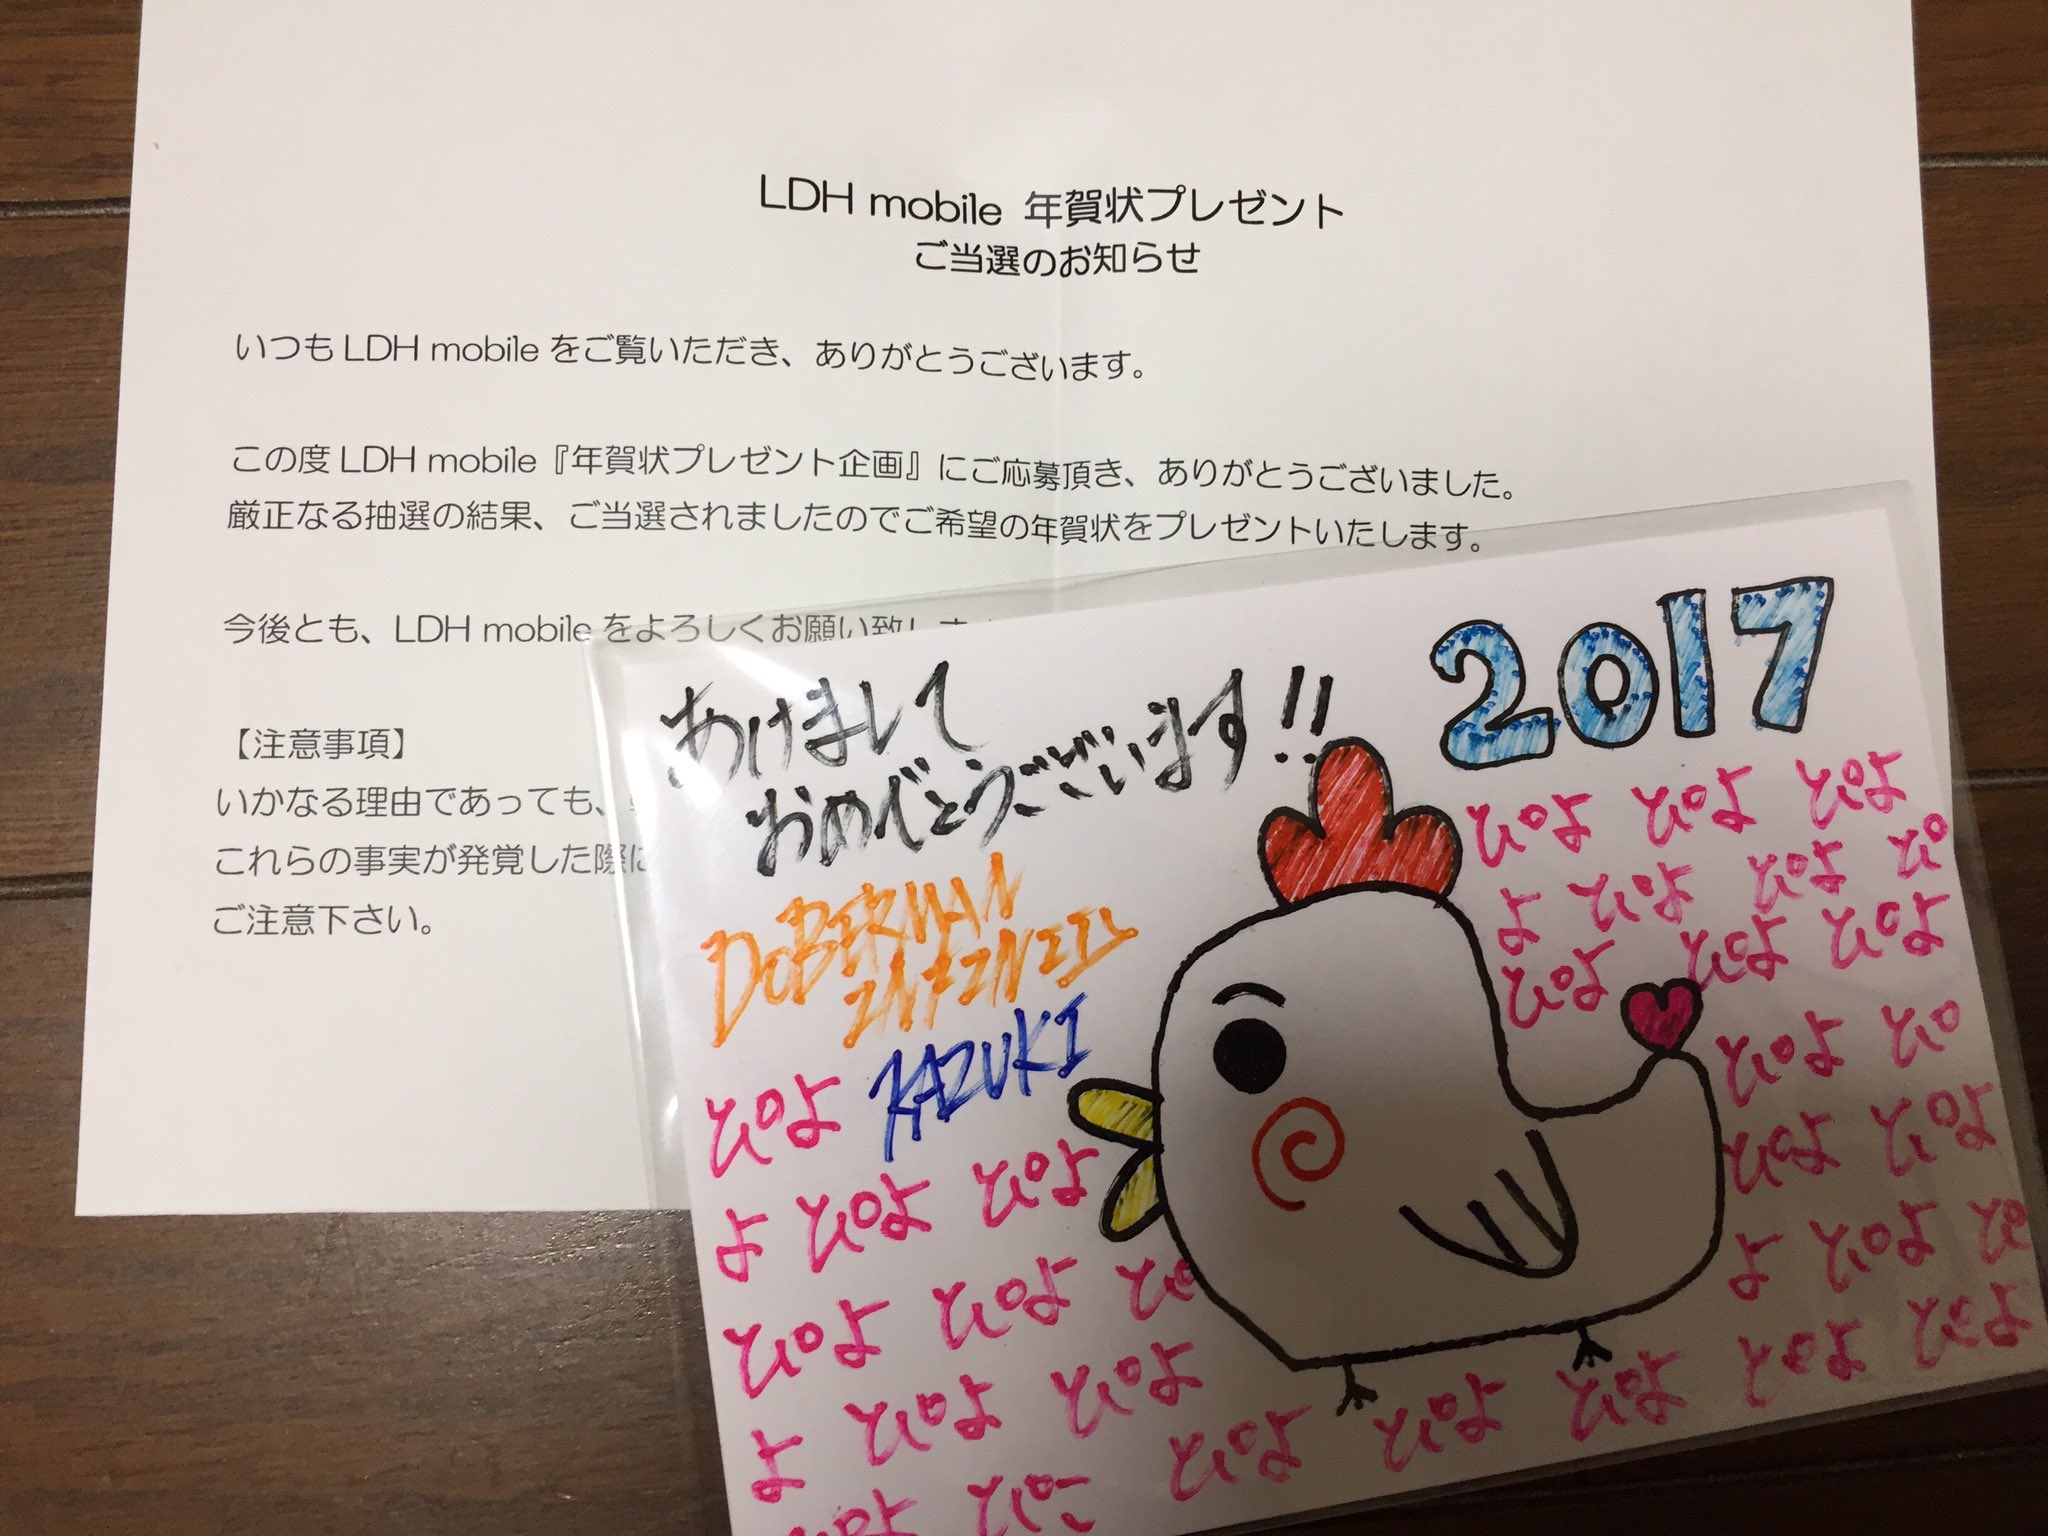 LDH mobile 年賀状プレゼント
ご当選のお知らせ
いつもLDH mobileをご覧いただき、ありがとうございます。
この度LDH mobile『年賀状プレゼント企画』にご応募頂き、ありがとうございました。
厳正なる抽選の結果、ご当選されましたのでご希望の年賀状をプレゼントいたします。
今後とも、LDH mobileをよろしくお願い致します
【注意事項】
いかなる理由であっても、
これらの事実が発覚した際に
ご注意下さい。
2017
あけまして
おめでとうございます!!
DOBERMAN
INFINITY
KAZUKI
ぴよ ぴよ ぴよ
よ ぴよ ぴよ ぴ
ぴよ ぴよ ぴよ
ぴよ ぴ
ぴよ ぴよ
よ ぴよ ぴ
ぴよ
よ ぴよ ぴよ
ぴよ ぴよ ぴ
よ ぴよ ぴよ
ぴよ ぴよ ぴよ ぴよ ぴよ